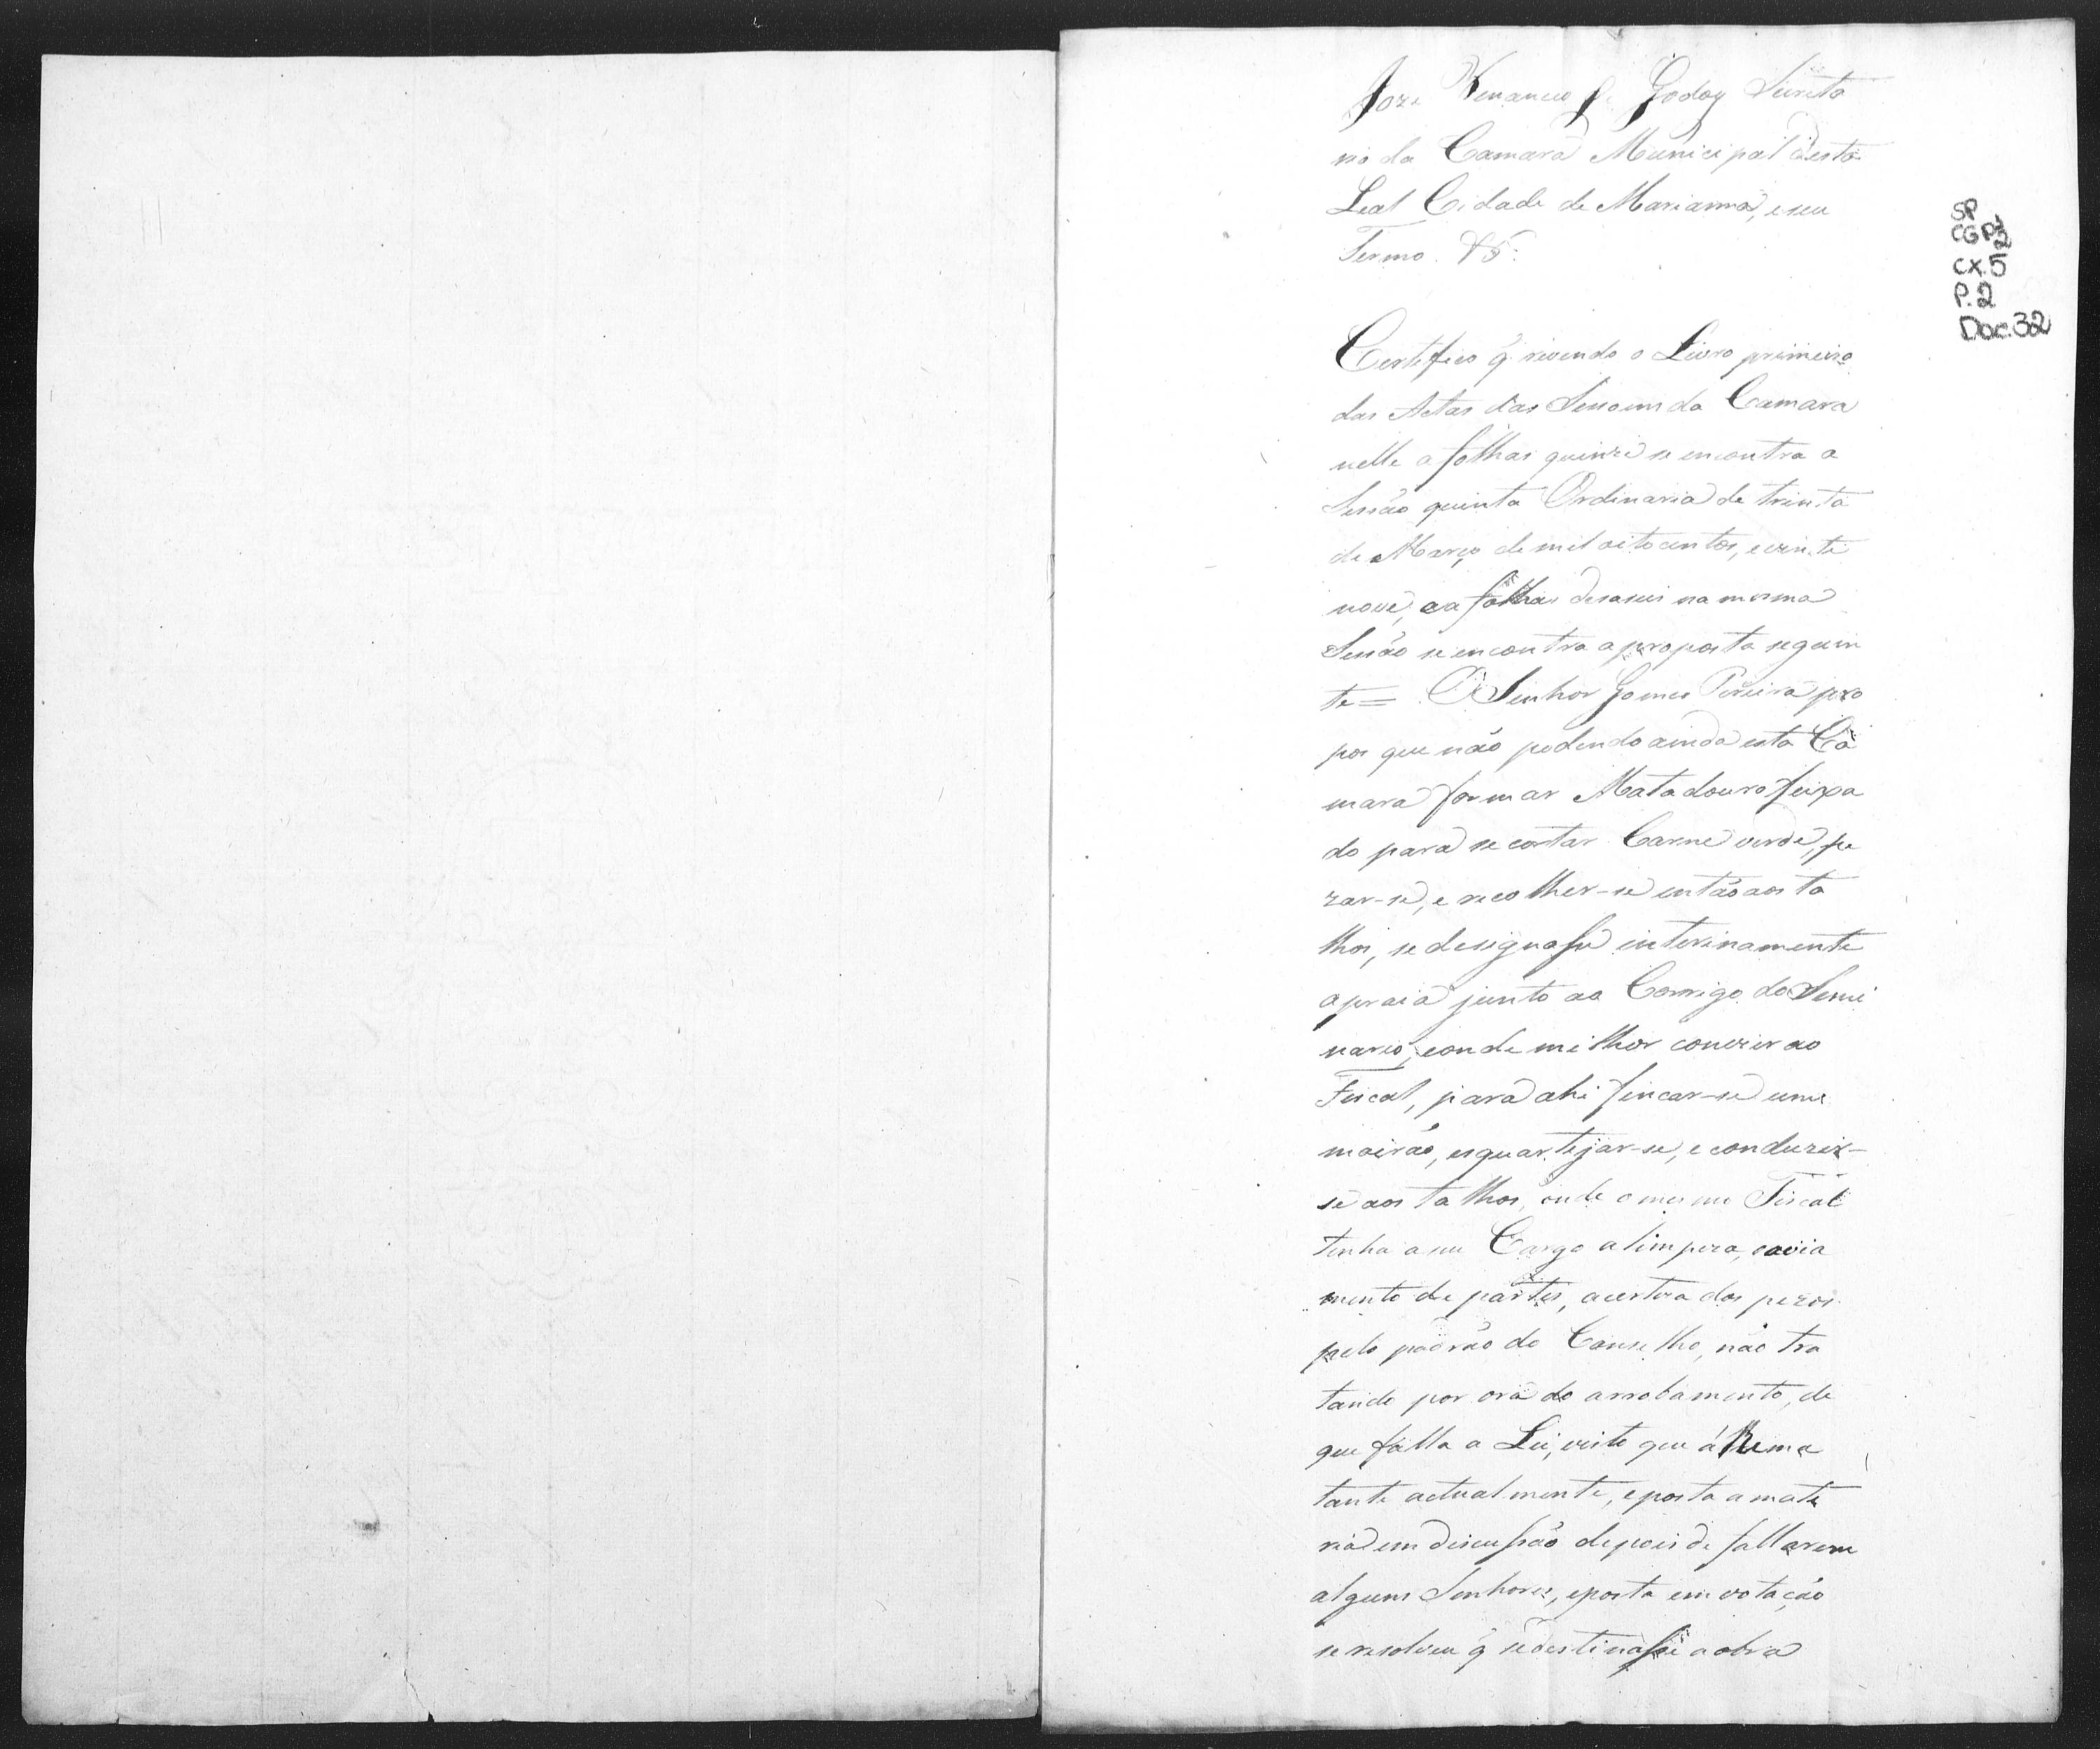 Joze Venancio de Godoy Secreta
rio da Camara Municipal desta
Leal Cidade de Marianna, e seu
Termo. &.
Certefico q̃. revendo o Livro primeiro
das Actas das Sessoens da Camara
nelle a folhas quinze se encontra a
Sessão quinta Ordinaria de trinta
de Março de mil oitocentos, e vinte
nove, e a folhas desaseis na mesma
Sessão se encontra a proposta seguin
te = O Senhor Gomes Pereira pro
pos que não podendo ainda esta Ca
mara formar Matadouro feixa
do para se cortar Carne verde, pe
zar-se, e recolher-se então aos ta
lhos, se designasse interinamente
a praia junto ao Corrigo do Semi
nario, e onde milhor convier ao
Fiscal, para ahi fincar-se um
moirão, esquartejar-se, e conduzir-
se aos talhos, onde o mesmo Fiscal
tenha a seu Cargo a limpeza, e avia
mento de partes, a certeza dos pezos
pelo padrão do Conselho, não tra
tando por ora do arrobamento, de
que falla a Lei, visto que á Rema
tante actualmente, e posta a mate
ria em discussão depois de fallarem
alguns Senhores, e posta em votação
se resolveu q̃ se destinasse a obra
SP
CGP2
CX.5
P.2
Doc.32